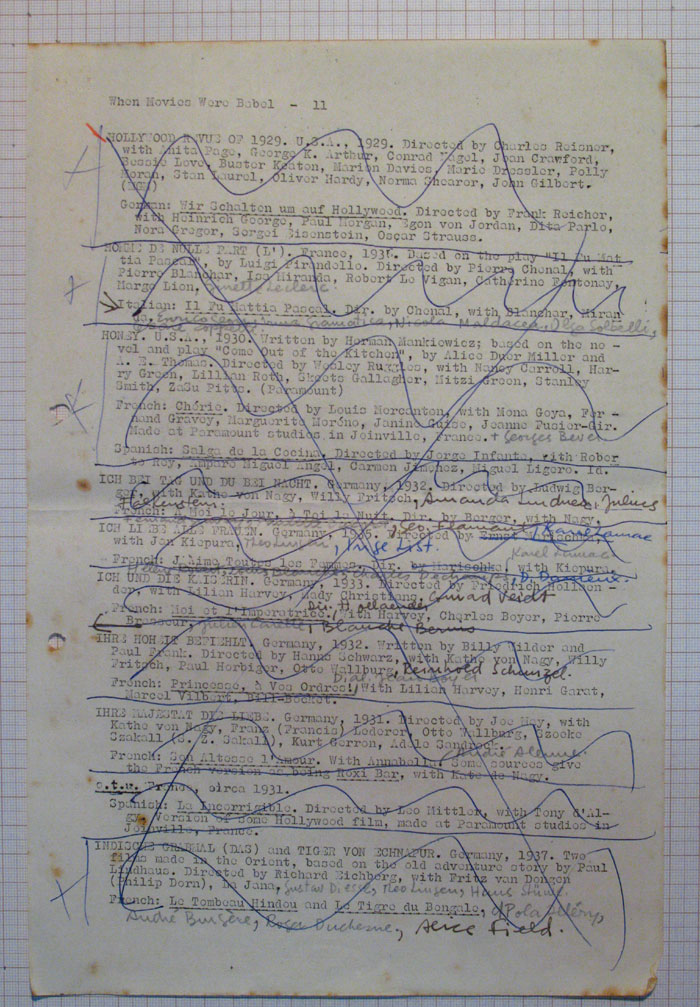 When Movies Were Babel - 11
HOLLYWOOD REVUE OF 1929. U.S.A., 1929. Directed by Charles Reisner,
with Anita Page, George K. Arthur, Conrad Nagel, Joan Crawford,
Bessie Love, Buster Keaton, Marion Davies, Marie Dressler, Polly
Moran, Stan Laurel, Oliver Hardy, Norma Shearer, John Gilbert.
(MGM)
German: Wir Schalten um auf Hollywood. Directed by Frank Reicher,
with Heinrich George, Paul Morgan, Egon von Jordan, Dita Parlo,
Nora Gregor, Sergei Eisenstein, Oscar Strauss.
HOMME DE NULLE PART (L'). France, 1936. Based on the play "Il Fu Mat
tia Pascal", by Luigi Pirandello. Directed by Pierre Chenal, with
Pierre Blanchar, Isa Miranda, Robert Le Vigan, Catherine Fontenay,
Margo Lion, Ginette Leclerc
Italian: Il Fu Mattia Pascal. Dir. by Chenal, with Blanchar, Miran
da, Enrico Gramatica, Nicola Maldacea, Olga Solbelli,
HONEY. U.S.A., 1930. Written by Herman Mankiewicz; based on the no -
vel and play "Come Out of the Kitchen", by Alice Duer Miller and
A. E. Thomas. Directed by Wesley Ruggles, with Nancy Carroll, Har-
ry Green, Lillian Roth, Skeets Gallagher, Mitzi Green, Stanley
Smith, ZaSu Pitts. (Paramount)
French: Chérie. Directed by Louis Mercanton, with Mona Goya, Fer -
nand Gravey, Marguerite Moréno, Janine Guise, Jeanne Fusier-Gir.
Made at Paramount studios in Joinville, France. + Georges Bever
Spanish: Salga de la Cocina. Directed by Jorge Infante, with Rober
to Rey, Amparo Miguel Angel, Carmen Jimenez, Miguel Ligero. Id.
ICH BEI TAG UND DU BEI NACHT. Germany, 1932. Directed by Ludwig Ber-
ger, with Kathe von Nagy, Willy Fritsch, Amanda Lindner, Julius
Falkenstein.
French: A Moi le Jour, à Toi la Nuit. Dir. by Berger, with Nagy,
ICH LIEBE ALLE FRAUEN. Germany, 1935. Directed by Karel Lamac
with Jan Kiepura, Theo Lingen, Inge List.
Karel Lamac
French: J'aime Toutes les Femmes. Dir. by Marischka, with Kiepura,
D. Darrieux.
ICH UND DIE KAISERIN. Germany, 1933. Directed by Friedrich Hollaen-
der, with Lilian Harvey, Mady Christians, Conrad Veidt
Dir. Hollaender
French: Moi et l'Imperatrice. With Harvey, Charles Boyer, Pierre
Brasseur, Julius Carette, Blanche Bernis
IHRE HOHEIT BEFIEHLT. Germany, 1932. Written by Billy Wilder and
Paul Frank. Directed by Hanns Schwarz, with Kathe von Nagy, Willy
Fritsch, Paul Horbiger, Otto Wallburg, Reinhold Schunzel.
French: Princesse, à Vos Ordres! With Lilian Harvey, Henri Garat,
Marcel Vibert, Bill-Bocket.
IHRE MAJESTAT DIE LIEBE. Germany, 1931. Directed by Joe May, with
Kathe von Nagy, Franz (Francis) Lederer, Otto Wallburg, Szoeke
Szakall (S. Z. Sakall), Kurt Gerron, Adele Sandrock.
French: Son Altesse l'Amour. With Annabella. Some sources give
the French version as being Roxi Bar, with Kate de Nagy.
s.t.u. France, circa 1931.
Spanish: La Incorrigible. Directed by Leo Mittler, with Tony d'Al-
gy. Version of some Hollywood film, made at Paramount studios in
Joinville, France.
INDISCHE GRABMAL (DAS) and TIGER VON ECHNAPUR. Germany, 1937. Two
films made in the Orient, based on the old adventure story by Paul
Lindhaus. Directed by Richard Eichberg, with Fritz van Dongen
(Philip Dorn), La Jana, Gustav Diessl, Theo Lingen, Hans Stüwe.
French: Le Tombeau Hindou and Le Tigre du Bengale, Pola Illéry,
André Burgère, Roger Duchesne, Alice Field.